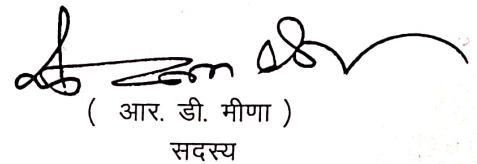 ( आर. डी. मीणा )
सदस्य